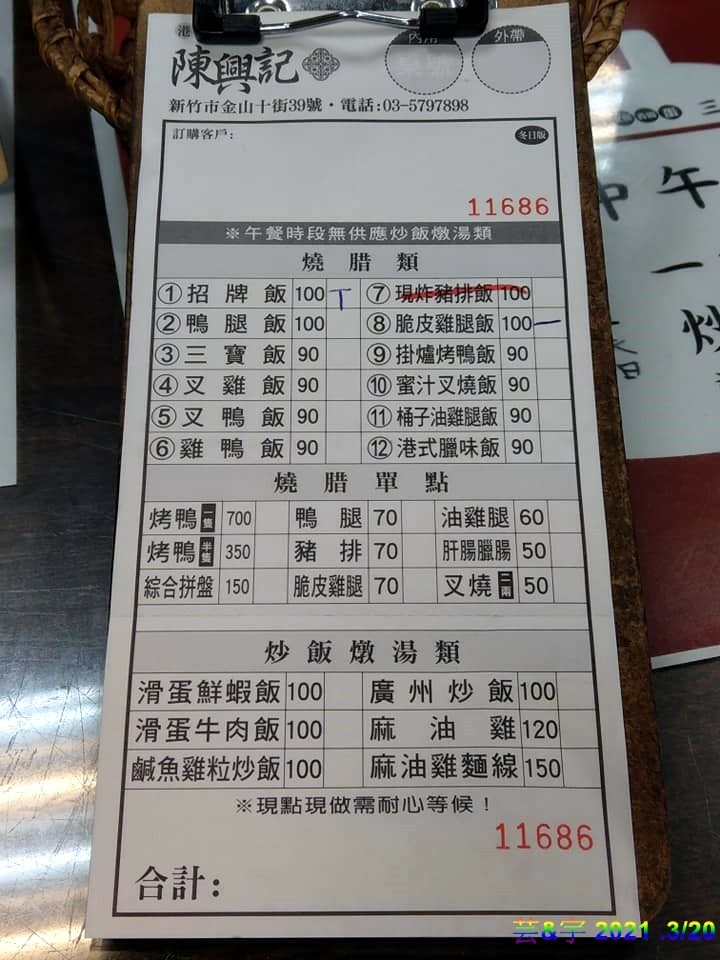 港
陳興記
內用
外帶
新竹市金山十街39號・電話:03-5797898
訂購客戶:
冬日版
11686
※午餐時段無供應炒飯燉湯類
燒腊類
①招牌飯 100 T ⑦現炸豬排飯 100
②鴨腿飯 100 ⑧脆皮雞腿飯 100 一
③三寶飯 90 ⑨掛爐烤鴨飯 90
④叉雞飯 90 ⑩蜜汁叉燒飯 90
⑤叉鴨飯 90 ⑪桶子油雞腿飯 90
⑥雞鴨飯 90 ⑫港式臘味飯 90
燒腊單點
烤鴨一隻 700 鴨腿 70 油雞腿 60
烤鴨半隻 350 豬排 70 肝腸臘腸 50
綜合拼盤 150 脆皮雞腿 70 叉燒二兩 50
炒飯燉湯類
滑蛋鮮蝦飯 100 廣州炒飯 100
滑蛋牛肉飯 100 麻油雞 120
鹹魚雞粒炒飯 100 麻油雞麵線 150
※現點現做需耐心等候！
11686
合計:
三
中午
一
炒
芸&宇 2021 .3/20